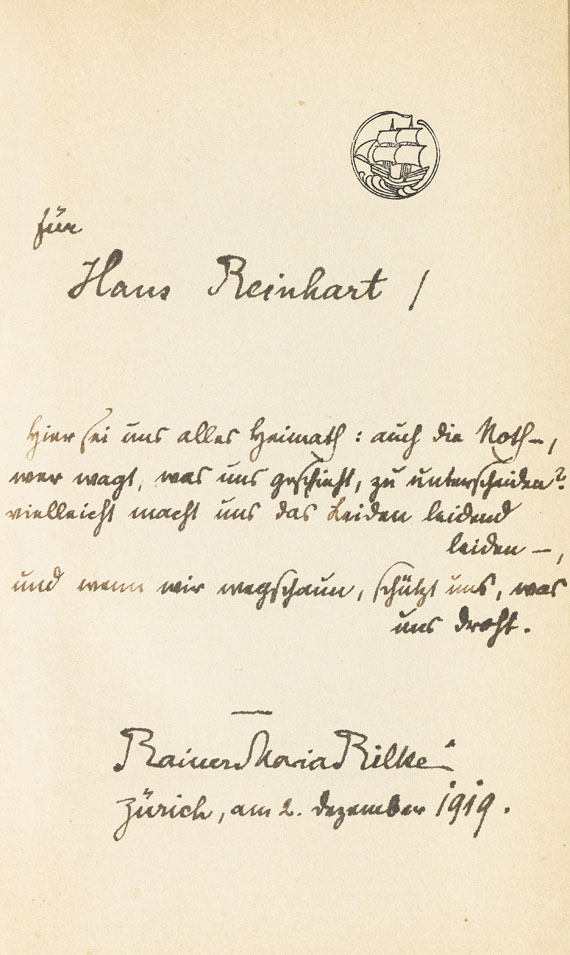 für
Hans Reinhart /
Hier sei uns alles Heimath: auch die Noth –,
wer wagt, was uns geschieht, zu unterscheiden?
vielleicht macht uns das Leiden leidend
leiden –,
und wenn wir wegschaun, schützt uns, was
uns droht.
Rainer Maria Rilke
Zürich, am 2. Dezember 1919.